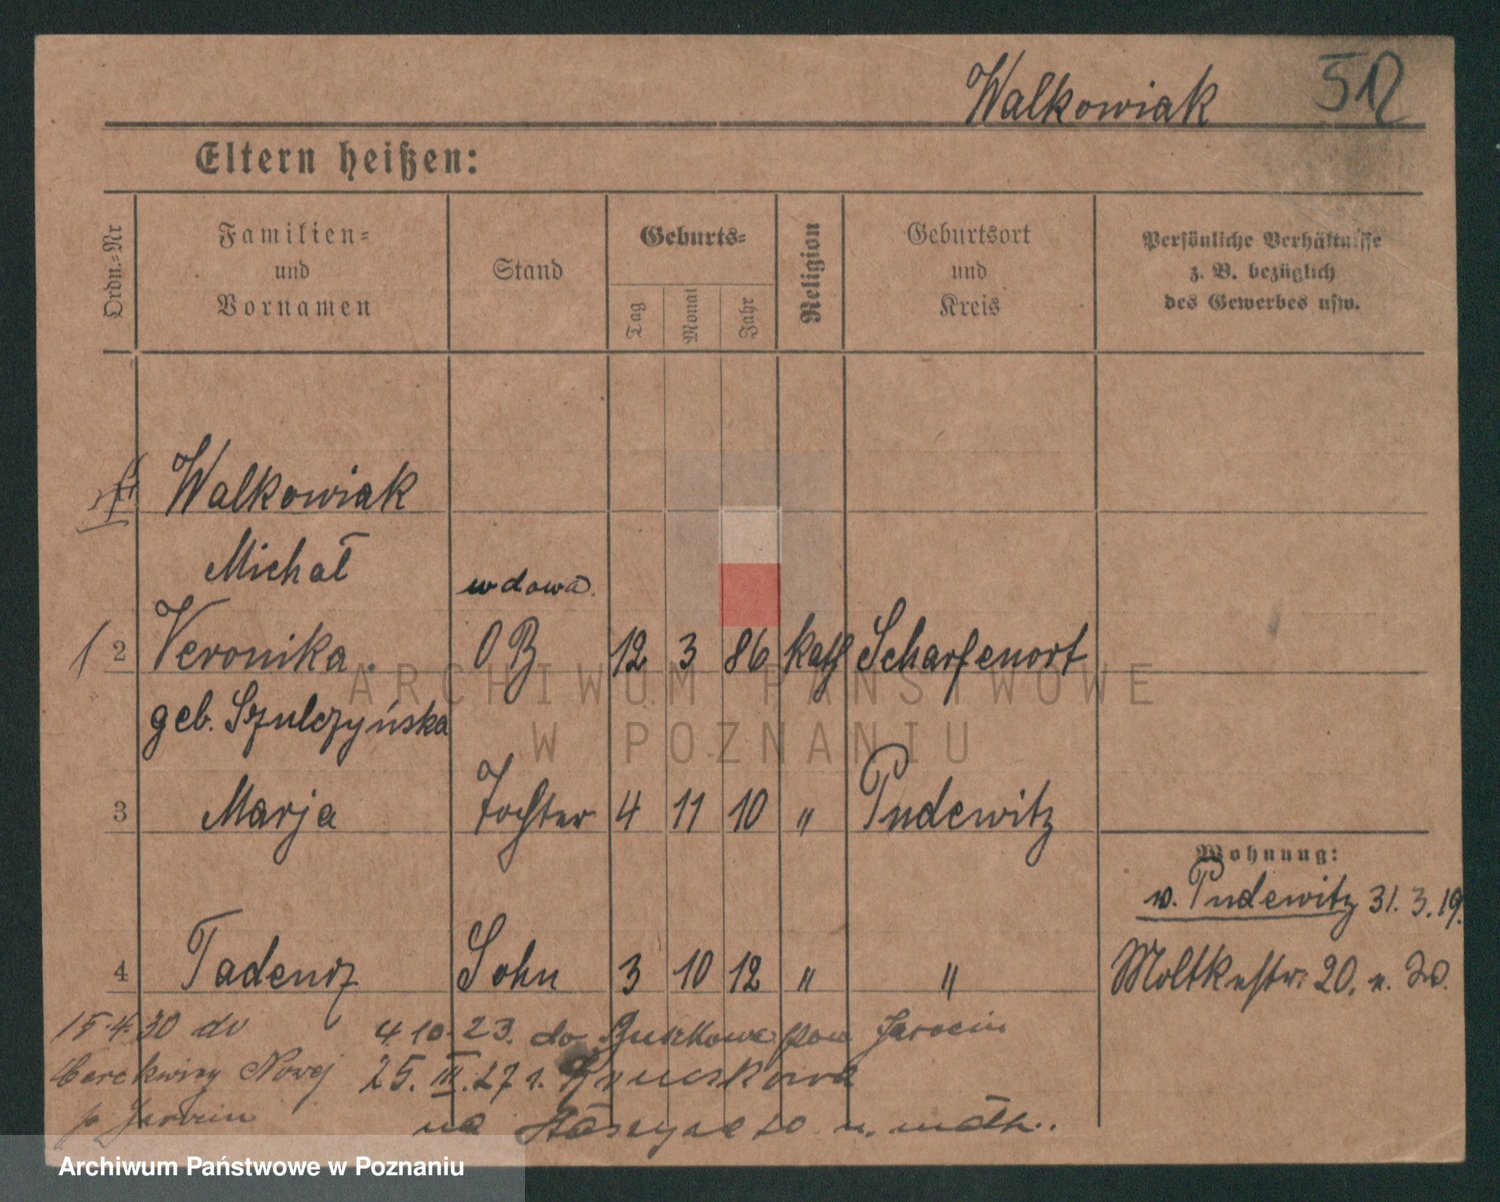 Walkowiak 512
Eltern heißen:
Ordn.-Nr
Familien-
und
Vornamen
Stand
Geburts-
Tag
Monat
Jahr
Religion
Geburtsort
und
Kreis
Persönliche Verhältnisse
z. B. bezüglich
des Gewerbes usw.
Walkowiak
Michał
wdowa.
2 Veronika. OB 12 3 86 kath Scharfenort
geb. Szulczyńska
3 Marja Tochter 4 11 10 " Pudewitz
Wohnung:
v. Pudewitz 31.3.19.
4 Tadeusz Sohn 3 10 12 " "
Moltkestr. 20.
15.4.30 do 4 10. 23. do Jarocin
Novej 25. III. 27 r.
p Jarocin na
ARCHIWUM PAŃSTWOWE
W POZNANIU
Archiwum Państwowe w Poznaniu